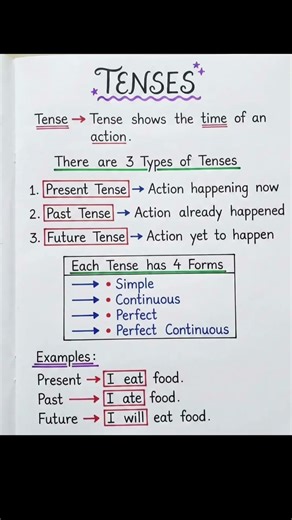 TENSES
Tense → Tense shows the time of an
action.
There are 3 Types of Tenses
1. Present Tense → Action happening now
2. Past Tense → Action already happened
3. Future Tense → Action yet to happen
Each Tense has 4 Forms
→ • Simple
→ • Continuous
→ • Perfect
→ • Perfect Continuous
Examples:
Present → I eat food.
Past → I ate food.
Future → I will eat food.